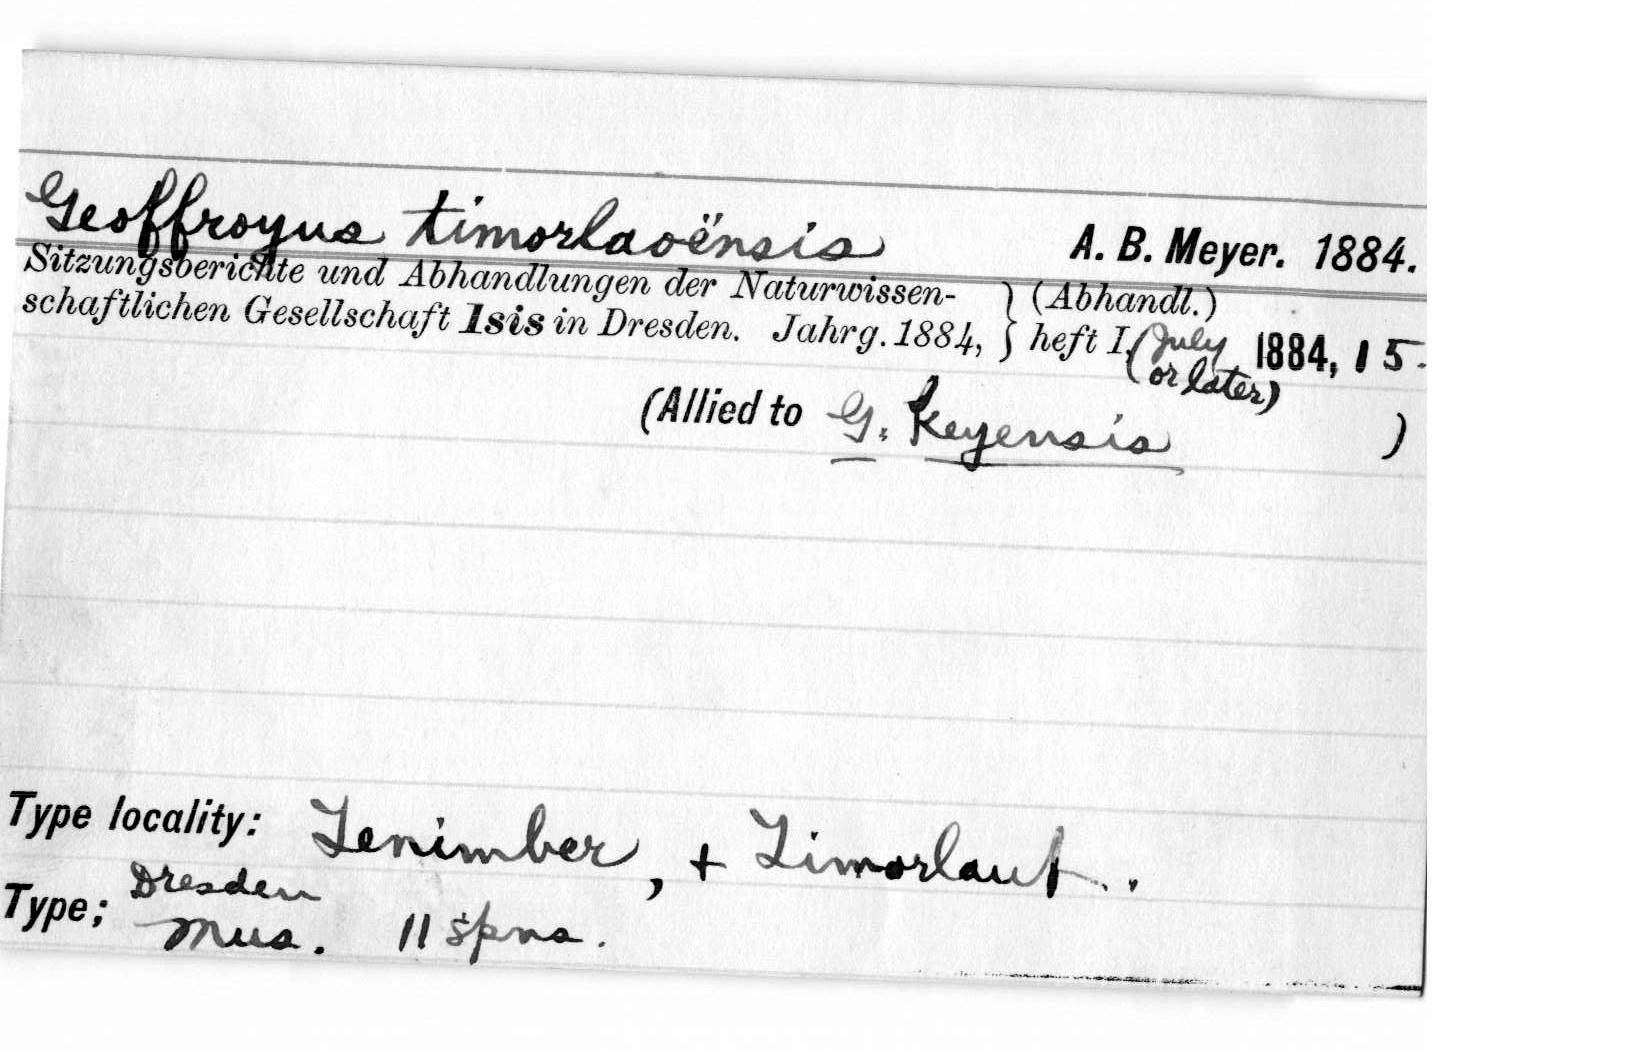 Geoffroyus timorlaoënsis A. B. Meyer. 1884.
Sitzungsberichte und Abhandlungen der Naturwissen- } (Abhandl.)
schaftlichen Gesellschaft Isis in Dresden. Jahrg. 1884, } heft I, (July 1884, 15.
or later)
(Allied to G. Keyensis )
Type locality: Tenimber, + Timorlaut.
Dresden
Type; Mus. 11 spns.